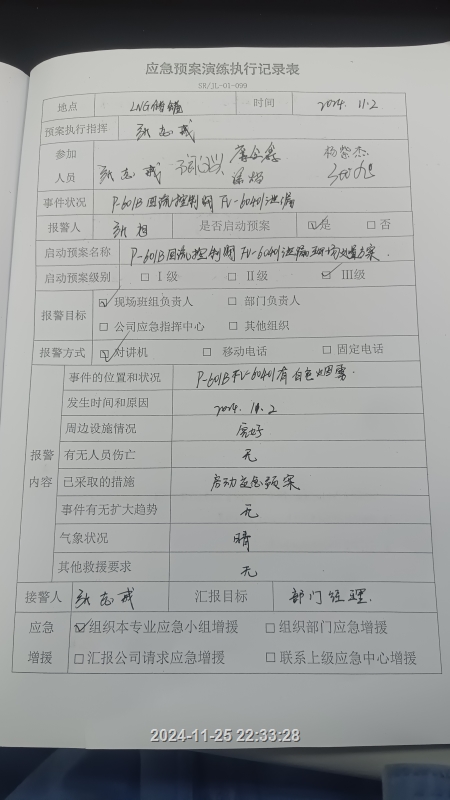 应急预案演练执行记录表
SR/JL-01-099
地点 LNG储罐 时间 2024.11.2
预案执行指挥 张志成
参加 张志成
人员 杨紫杰
事件状况 P-601B回流控制阀FV-60401泄漏
报警人 张旭 是否启动预案 ☑是 □否
启动预案名称 P-601B回流控制阀FV-60401泄漏现场处置方案.
启动预案级别 □Ⅰ级 □Ⅱ级 ☑Ⅲ级
报警目标 ☑现场班组负责人 □部门负责人
□公司应急指挥中心 □其他组织
报警方式 ☑对讲机 □移动电话 □固定电话
报警
内容
事件的位置和状况 P-601B FV-60401有白色烟雾.
发生时间和原因 2024.11.2
周边设施情况 完好
有无人员伤亡 无
已采取的措施 启动应急预案
事件有无扩大趋势 无
气象状况 晴
其他救援要求 无
接警人 张志成 汇报目标 部门经理.
应急 ☑组织本专业应急小组增援 □组织部门应急增援
增援 □汇报公司请求应急增援 □联系上级应急中心增援
2024-11-25 22:33:28